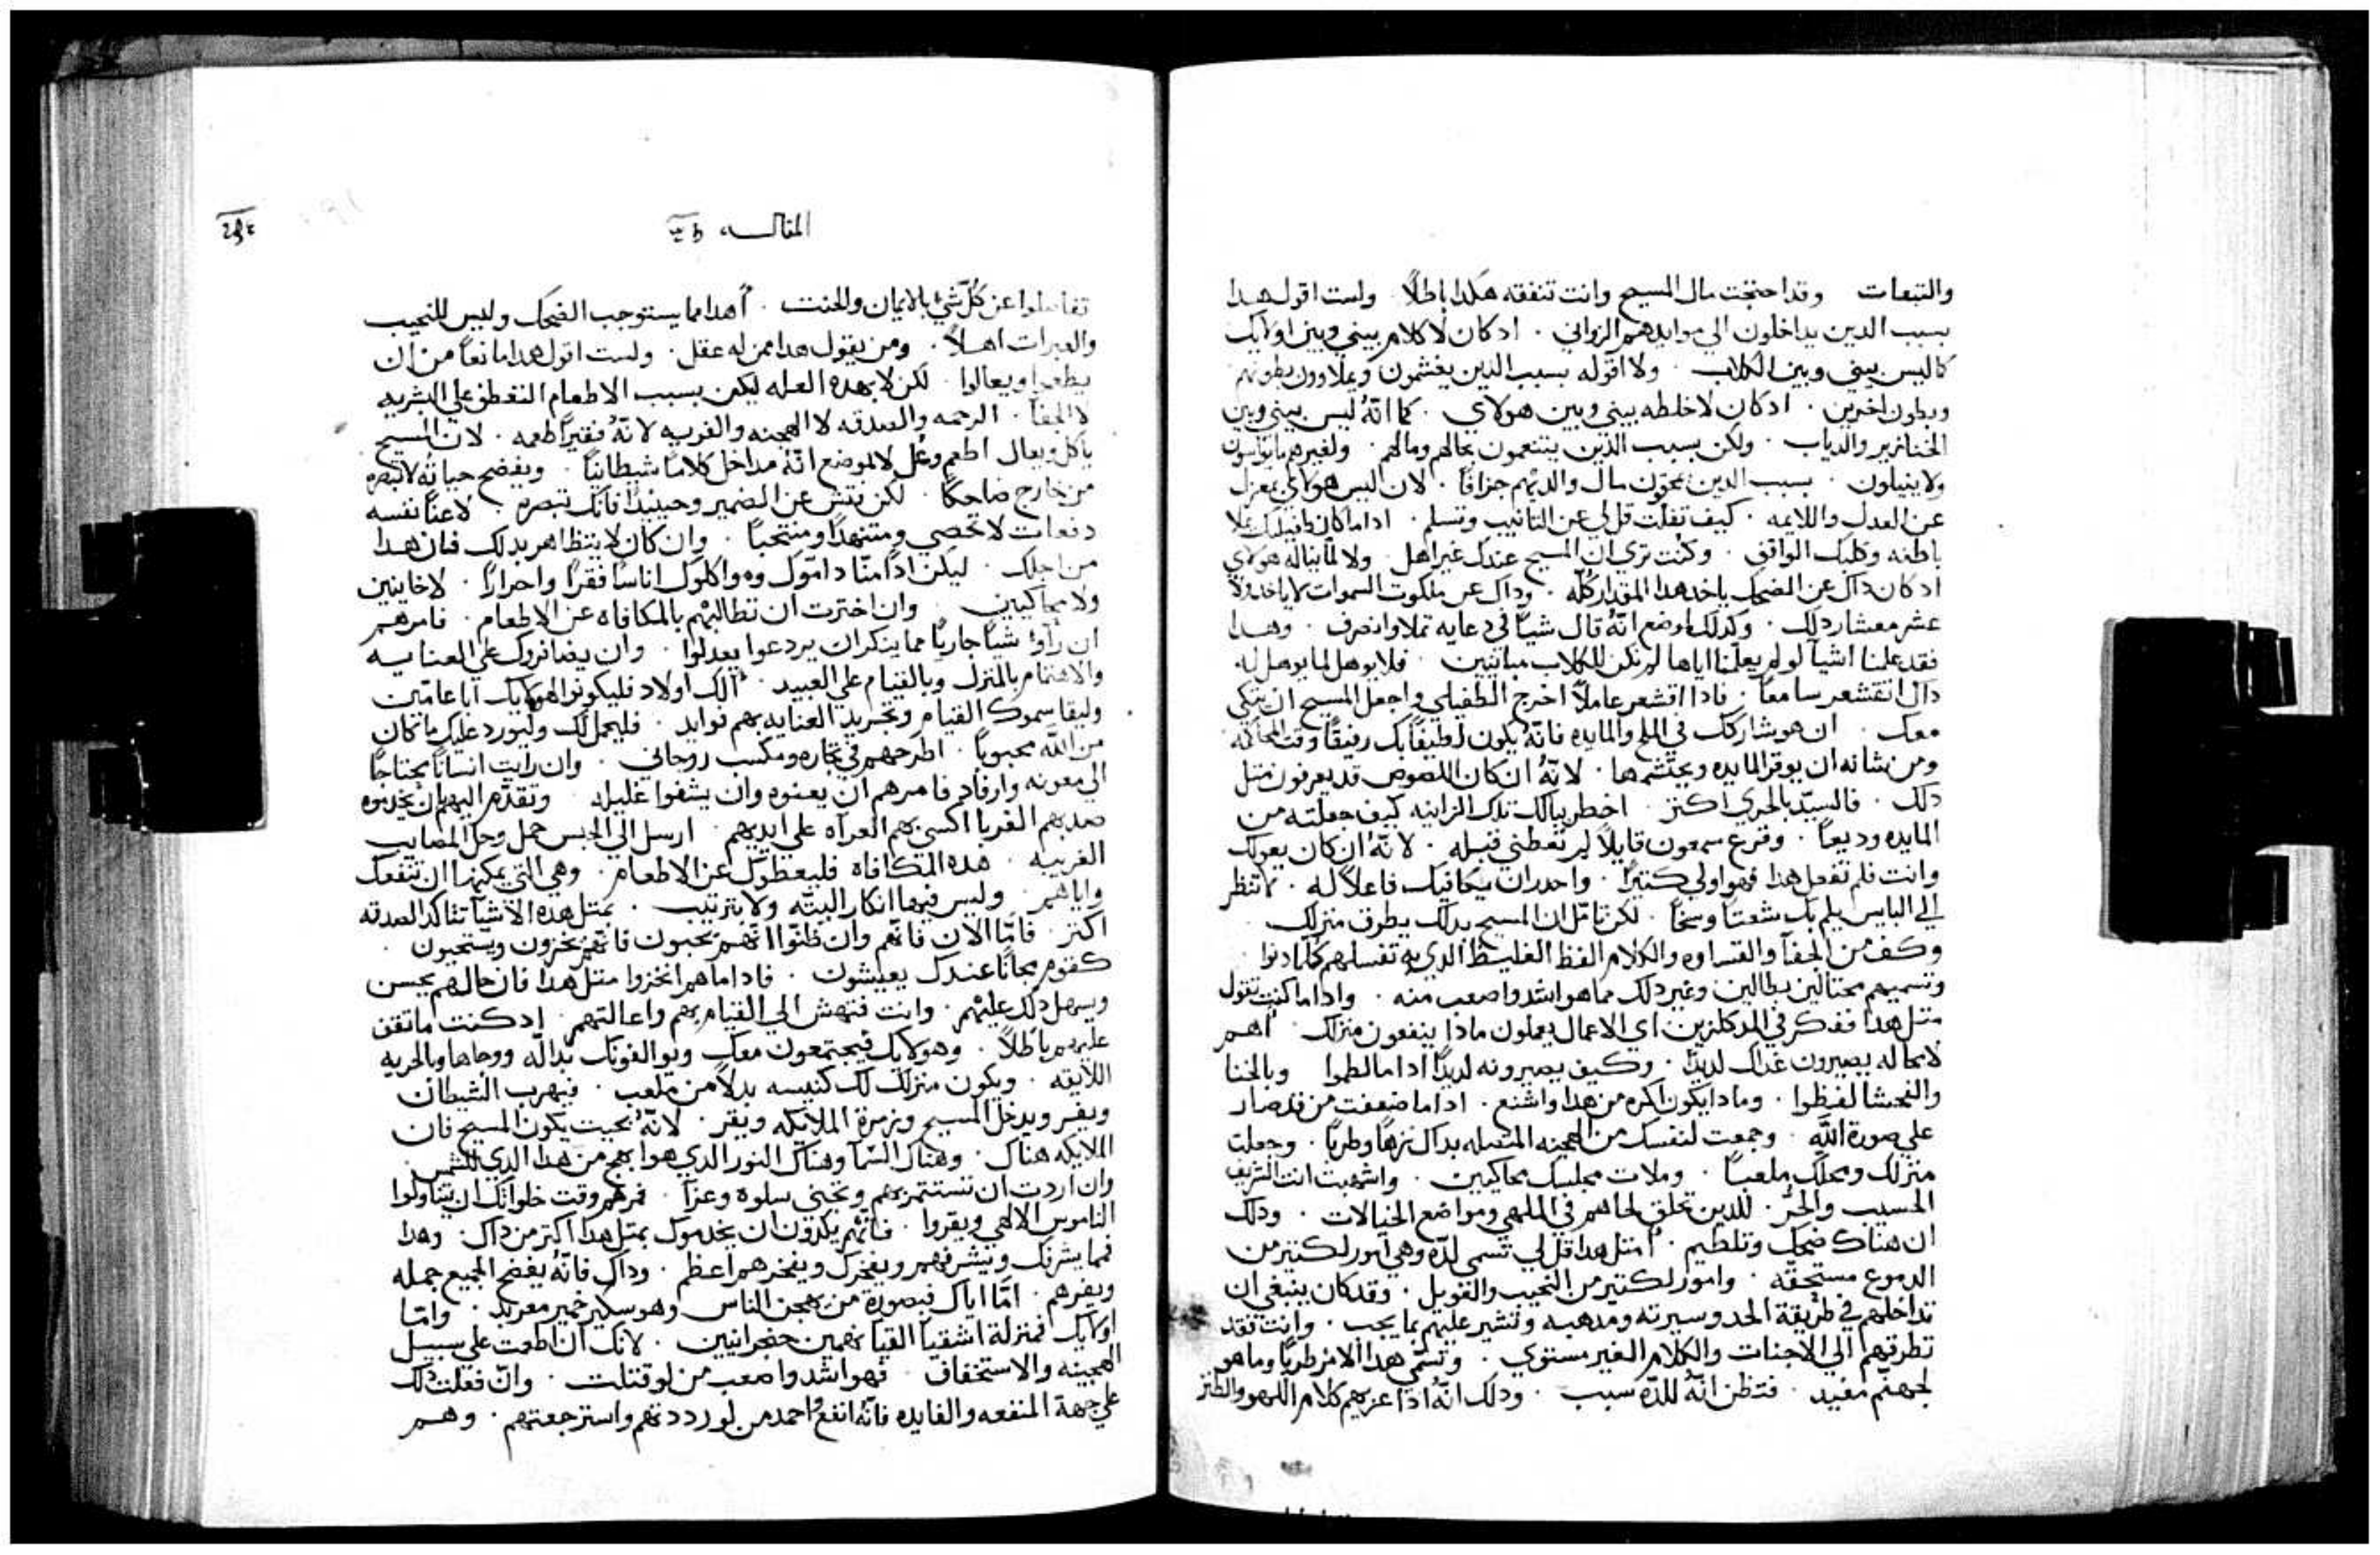 والتبعات وقد احتجت مال المسيح وانت تنفقه هكدا باطلاً ولست اقول هدا
بسبب الدين يداخلون الي موايدهم الزواني . ادكان لا كلام بيني وبين اوليك
كاليس بيني وبين الكلاب . ولا اقوله بسبب الدين يغشمون ويملاوون بطونهم
وبطون اخرين . ادكان لا خلطه بيني وبين هولاي . كما انّهُ ليس بيني وبين
الخنازير والدياب . ولكن بسبب الذين يتنعمون بحالهم ومالهم . ولغيرهم
ولا ينيلون . بسبب الدين مال والديهم جزافاً . لان ليس هولاي بمعزل
عن العدل واللايمه . كيف تفلت قل لي عن التانيب وتسلم . اداما كان طفيلك تملا
باطنه وكلبك الواقف . وكنت تري ان المسيح عندك غير اهل . ولا لما يناله هولاي
ادكان داك عن الضحك ياخد هدا المقدار كلّه . وداك عن ملكوت السموات لا ياخد ولا
عشر معشار دلك . وكدلك اوضع انّهُ قال شياً في دعايه تملا وانصرف . وهدا
فقد علمنا اشيآ لو لم يعلمنا اياها لم نكن للكلاب مباينين . فلا يوهل لما يوهل له
داك اتقشعر سامعاً . فادا اقشعر عاملاً اخرج الطفيلي واجعل المسيح ان يتكي
معك . ان هو شاركك في الملح والمايده فانّه يكون لطيفاً بك رفيقاً وقت المحاكمه
ومن شانه ان يوقر المايده ويحتشمها . لانّهُ ان كان اللصوص قد يعرفون مثل
دلك . فالسيّد بالحري اكتر . اخطر ببالك تلك الزانيه كيف جعلته من
المايده وديعاً . وقرع سمعون قايلاً لم تعطني قبله . لانّهُ ان كان يعولك
وانت فلم تفعل هدا فهو اولي كتيراً . واحدر ان يكافيك فاعلاً له . لا تنظر
الي البايس يلم بك شعتاً وسخاً . لكن تامّل ان المسيح بدلك يطرق منزلك
وكف من الجفآ والقساوه والكلام الفظ الغليظ الدي به تغسلهم كلما دنوا .
وتسميهم محتالين بطالين وغير دلك مما هو اشد واصعب منه . واداما كنت تقول
متل هدا ففكر في المدكلزين اي الاعمال يعملون مادا ينفعون منزلك . أهم
لا محاله يصيرون غداك لديداً . وكيف يصيرونه لديداً اداما لطموا وبالخنا
والفحشا لفظوا . وما دا يكون اكره من هدا واشنع . اداما ضعفت من قد صار
علي صورة اللّه . وجمعت لنفسك من الهجنه المتصله بداك نزهاً وطرباً . وجعلت
منزلك ومحلّك ملعباً . وملات مجلسك محاكيين . واشبهت انت الشريف
الحسيب والحُر . للدين تحلق لحاهم في الملهي ومواضع الخيالات . ودلك
ان هناك ضحك وتلطيم . أمتل هدا قل لي تسمي لدّه وهي امور لكتير من
الدموع مستحقه . وامور لكتير من النحيب والعويل . وقد كان ينبغي ان
تداخلهم في طريقة الجد وسيرته ومدهبه وتشير عليهم بما يجب . وانت فقد
تطرقهم الي الاجنات والكلام الغير مستوي . وتسمّي هدا الامر طرباً وما هو
لجهنّم مفيد . فتظن انّهُ للدّه سبب . ودلك انّهُ ادا عزبهم كلام اللهو والطنز
المقاله
تفاصلوا عن كلّ شيٍ بالايمان والحنت . أهدا مما يستوجب الضحك وليس للنحيب
والعبرات اهلاً . ومن يقول هدا ممن له عقل . ولست اقول هدا مانعاً من ان
يطعموا ويعالوا . لكن لا بهده العله ليكن بسبب الاطعام التعطف علي البشريه
لا الجفآ . الرحمه والصدقه لا الهجنه والفريه لانّهُ فقيراً اطعمه . لان المسيح
ياكل ويعال اطعم وعُل لا لموضع انّهُ مداخل كلاماً شيطانياً . ويفضح حياتهُ لا تبصره
من خارج ضاحكاً . لكن فتش عن الضمير وحينيدٍ فانّك تبصره . لاعناً نفسه
دفعات لا تحصي ومتنهداً ومنتحباً . وان كان لا يتظاهر بدلك فان هدا
من اجلك . ليكن اداً اناساً فقراً واحراراً . لا خاينين
ولا محاكيين . وان اخترت ان تطالبهم بالمكافاه عن الاطعام . فامرهم
ان راوا شياً جارياً مما ينكر ان يردعوا يعدلوا . وان يضافروك علي العنايه
والاهتمام بالمنزل وبالقيام علي العبيد . ألك اولاد فليكونوا لهولايك ابا عامّين
وليقاسموك القيام وتجريد العنايه بهم فوايد . فليحمل لك وليورد عليك ما كان
من اللّه محبوباً . اطرحهم في تجاره ومكسب روحاني . وان رايت انساناً محتاجاً
الي معونه وارفاد فامرهم ان يعينوه وان يشفوا غليله . وتقدّم اليهم ان يخدموه
صد بهم الغربا اكسي بهم العراه علي ايديهم . ارسل الي الحبس حمل وحل المصايب
الغريبه . هده المكافاه فليعطوك عن الاطعام . وهي التي يمكنها ان تنفعك
واياهم . وليس فيها انكار البته ولا بترتيب . بمتل هده الاشيآ تتاكد الصدقه
اكتر . فامّا الان فانّهم وان ظنّوا انّهم يحبون فانهم يخزون ويستحيون .
كقوم مجاناً عندك يعيشون . فاداما هم انجزوا متل هدا فان حالهم يحسن
ويسهل دلك عليهم . وانت فتهش الي القيام بهم واعالتهم . ادكنت ما تنفق
عليهم باطلاً . وهولايك فيجتمعون معك ويوالفونك بداله ووجاها وبالحريه
اللايقه . ويكون منزلك لك كنيسه بدلاً من ملعب . فيهرب الشيطان
ويفر ويدخل المسيح وزمرة الملايكه ويقر . لانّهُ بحيت يكون المسيح فان
الملايكه هناك . وهناك السّمآ وهناك النور الدي هو ابهج من هدا الدي للشمس .
وان اردت ان تستتمر بهم وتجني سلوه وعزآ . فمرهم وقت خلوانك ان يتناولوا
الناموس الالهي ويقروا . فانّهم يلدون ان يخدموك بمتل هدا اكتر من داك . وهدا
فما يشرفك ويشرفهم ويفخرك ويفخرهم اعظم . وداك فانّهُ يفضح الجميع جمله
ويفرهم . امّا اياك فبصورة من يهجن الناس وهو سكير خمير معربد . وامّا
اوليك فمنزلة اشقيآ القيآ نهمين حنجرانيين . لانك ان اطعمت علي سبيل
الهجينه والاستخفاف . فهو اشد واصعب من لو قتلت . وان فعلت دلك
علي جهة المنفعه والفايده فانّهُ انفع واحمد من لو رددتهم واسترجعتهم . وهم